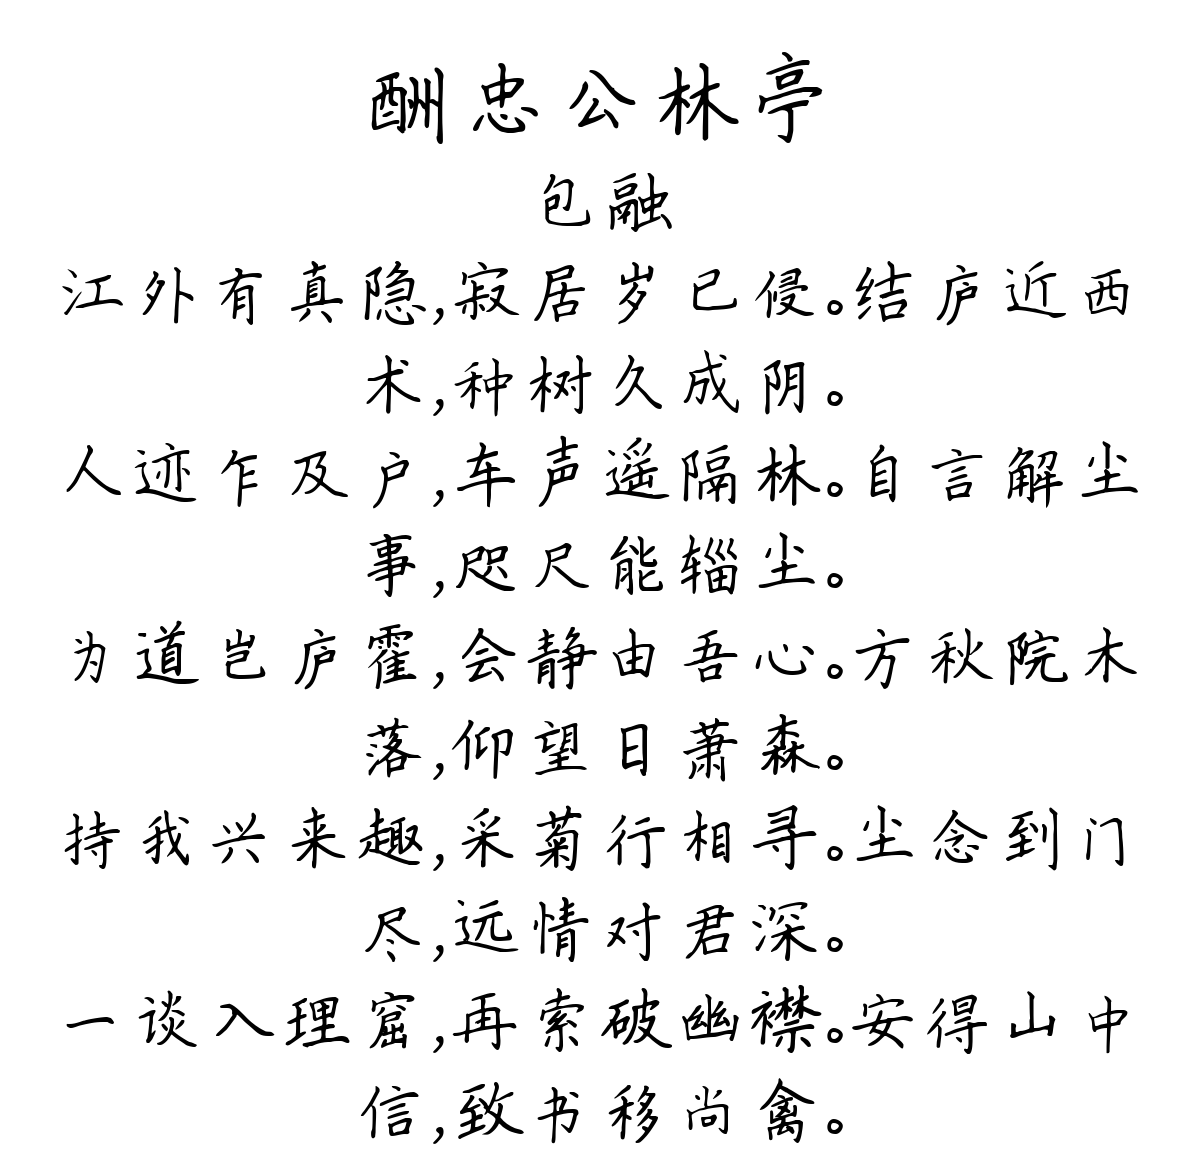 酬忠公林亭
包融
江外有真隐,寂居岁已侵。结庐近西
术,种树久成阴。
人迹乍及户,车声遥隔林。自言解尘
事,咫尺能辎尘。
为道岂庐霍,会静由吾心。方秋院木
落,仰望日萧森。
持我兴来趣,采菊行相寻。尘念到门
尽,远情对君深。
一谈入理窟,再索破幽襟。安得山中
信,致书移尚禽。